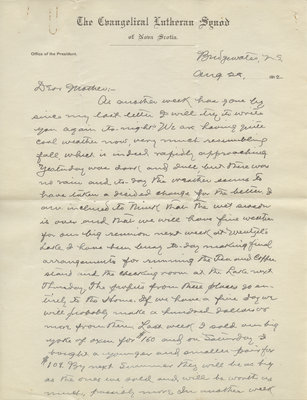 The Evangelical Lutheran Synod
of Nova Scotia.
Office of the President.
Bridgewater, N.S.
Aug 22, 1912.
Dear Mother:-
As another week has gone by
since my last letter I will try to write
you again to-night. We are having quite
cool weather now very much resembling
fall which is indeed rapidly approaching
Yesterday was dark and dull but there was
no rain and to-day the weather seems to
have taken a decided change for the better. I
am inclined to think that the wet season
is over and that we will have fine weather
for our big reunion next week at
Lake. I have been busy to-day making final
arrangements for running the Ice and Coffee
stand and the checking room at the Lake next
Thursday. The profits from these places go en-
tirely to the Home. If we have a fine day we
will probably make a hundred dollars or
more from them. Last week I sold our big
yoke of oxen for $160 and on Saturday I
bought a younger and smaller pair for
$109. By next Summer they will be as big
as the ones we sold and will be worth as
much, possibly more. In another week